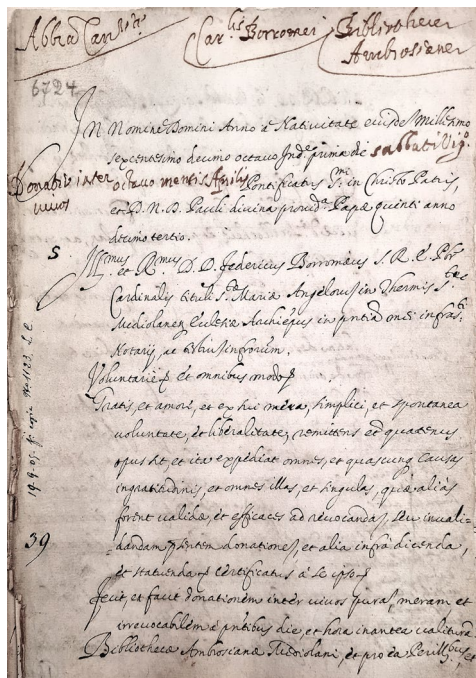 Abbrã Can^ris
Car^lis Borromei
Bibliothecæ
Ambrosianæ
6724
In Nomine Domini Anno à Nativitate eiusdẽ Millesimo
sexcentesimo decimo octavo Ind^e prima die sabbati Vig.^mo
Donatio inter octavo mensis Aprilis Pontificatus S.^mi in Christo Patris,
vivos
et D. N. D. Pauli divina provid^a Papæ Quinti anno
decimo tertio.
S Ill^mus et R^mus D. D. Federicus Borromæus S. R. E. Pbr
Cardinalis tituli S.^tæ Mariæ Angelorũ in Thermis S.^tæ
Mediolanẽ Ecclesiæ Archiepus in pntia mei infras.^ti
Notarij, ac testiũ infrorum.
Voluntariè et omnibus modo
Gratis, et amore, et ex sui mera, simplici, et spontanea
voluntate, et liberalitate, remittens et quatenus
opus sit, et ita expediat omnes, et quascunq causas
ingratitudinis, et omnes illas, et singulas, quæ alias
forent validæ, et efficaces ad revocandas, seu invali-
39 -dandam pñtem donatione, et alia infra dicenda,
et statuenda certificatus à se ipso
Fecit, et facit donationem inter vivos purã, meram et
irrevocabilem à pñtibus die, et hora in antea valiturã
Bibliothecæ Ambrosianæ Mediolani, et pro ea Perill^bus, et